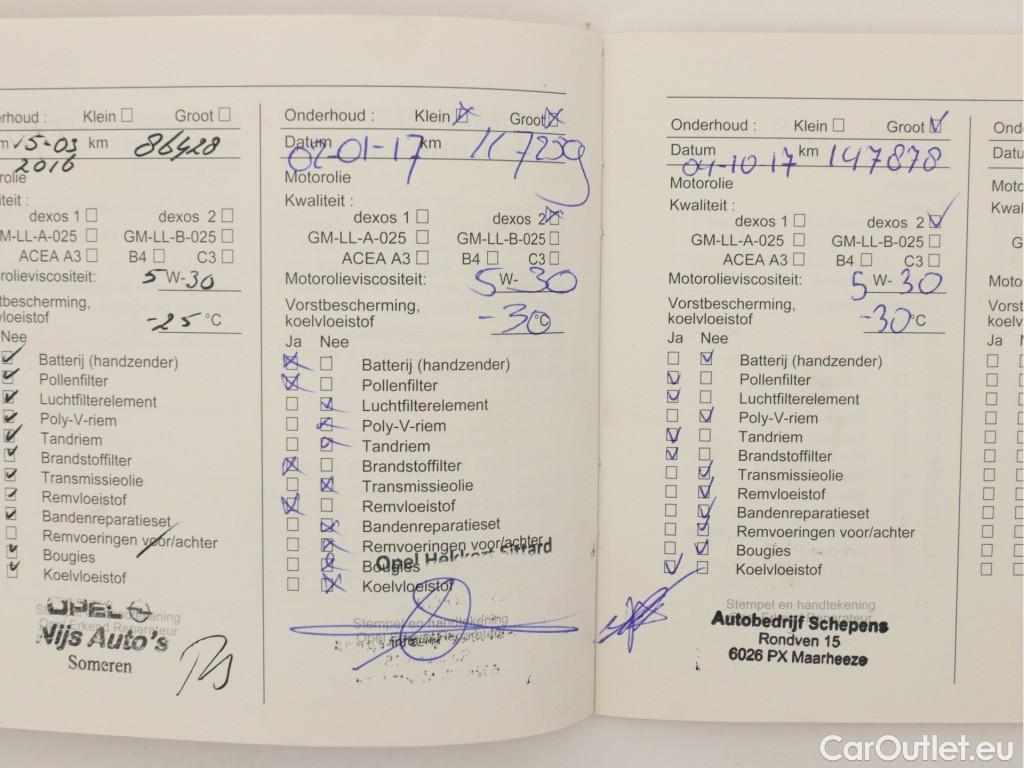 erhoud : Klein Groot
m 15-03 km 86428
2016
rolie
iteit :
dexos 1 dexos 2
GM-LL-A-025 GM-LL-B-025
ACEA A3 B4 C3
torolieviscositeit: 5 W-30
stbescherming,
lvloeistof -25 °C
Nee
Batterij (handzender)
Pollenfilter
Luchtfilterelement
Poly-V-riem
Tandriem
Brandstoffilter
Transmissieolie
Remvloeistof
Bandenreparatieset
Remvoeringen voor/achter
Bougies
Koelvloeistof
Stempel en handtekening
Opel Erkend Reparateur
OPEL
Nijs Auto's
Someren
Onderhoud : Klein Groot
Datum 02-01-17 km 117259
Motorolie
Kwaliteit :
dexos 1 dexos 2
GM-LL-A-025 GM-LL-B-025
ACEA A3 B4 C3
Motorolieviscositeit: 5 W- 30
Vorstbescherming,
koelvloeistof -30 °C
Ja Nee
Batterij (handzender)
Pollenfilter
Luchtfilterelement
Poly-V-riem
Tandriem
Brandstoffilter
Transmissieolie
Remvloeistof
Bandenreparatieset
Remvoeringen voor/achter
Opel Hekkert Sittard
Bougies
Koelvloeistof
Stempel en handtekening
Opel Erkend Reparateur
Onderhoud : Klein Groot
Datum 04-10-17 km 147878
Motorolie
Kwaliteit :
dexos 1 dexos 2
GM-LL-A-025 GM-LL-B-025
ACEA A3 B4 C3
Motorolieviscositeit: 5 W- 30
Vorstbescherming,
koelvloeistof -30 °C
Ja Nee
Batterij (handzender)
Pollenfilter
Luchtfilterelement
Poly-V-riem
Tandriem
Brandstoffilter
Transmissieolie
Remvloeistof
Bandenreparatieset
Remvoeringen voor/achter
Bougies
Koelvloeistof
Stempel en handtekening
Autobedrijf Schepens
Rondven 15
6026 PX Maarheeze
Ond
Datu
Moto
Kwal
G
Moto
Vors
koelv
Ja
CarOutlet.eu